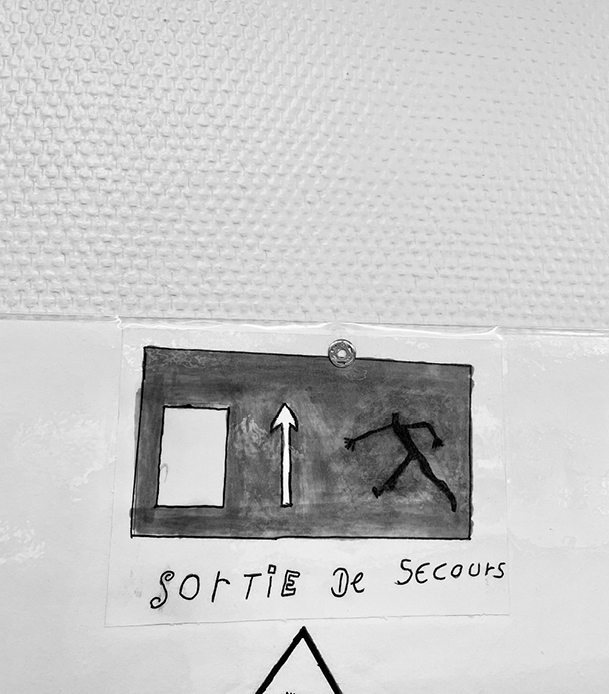 SOrTiE De SECours